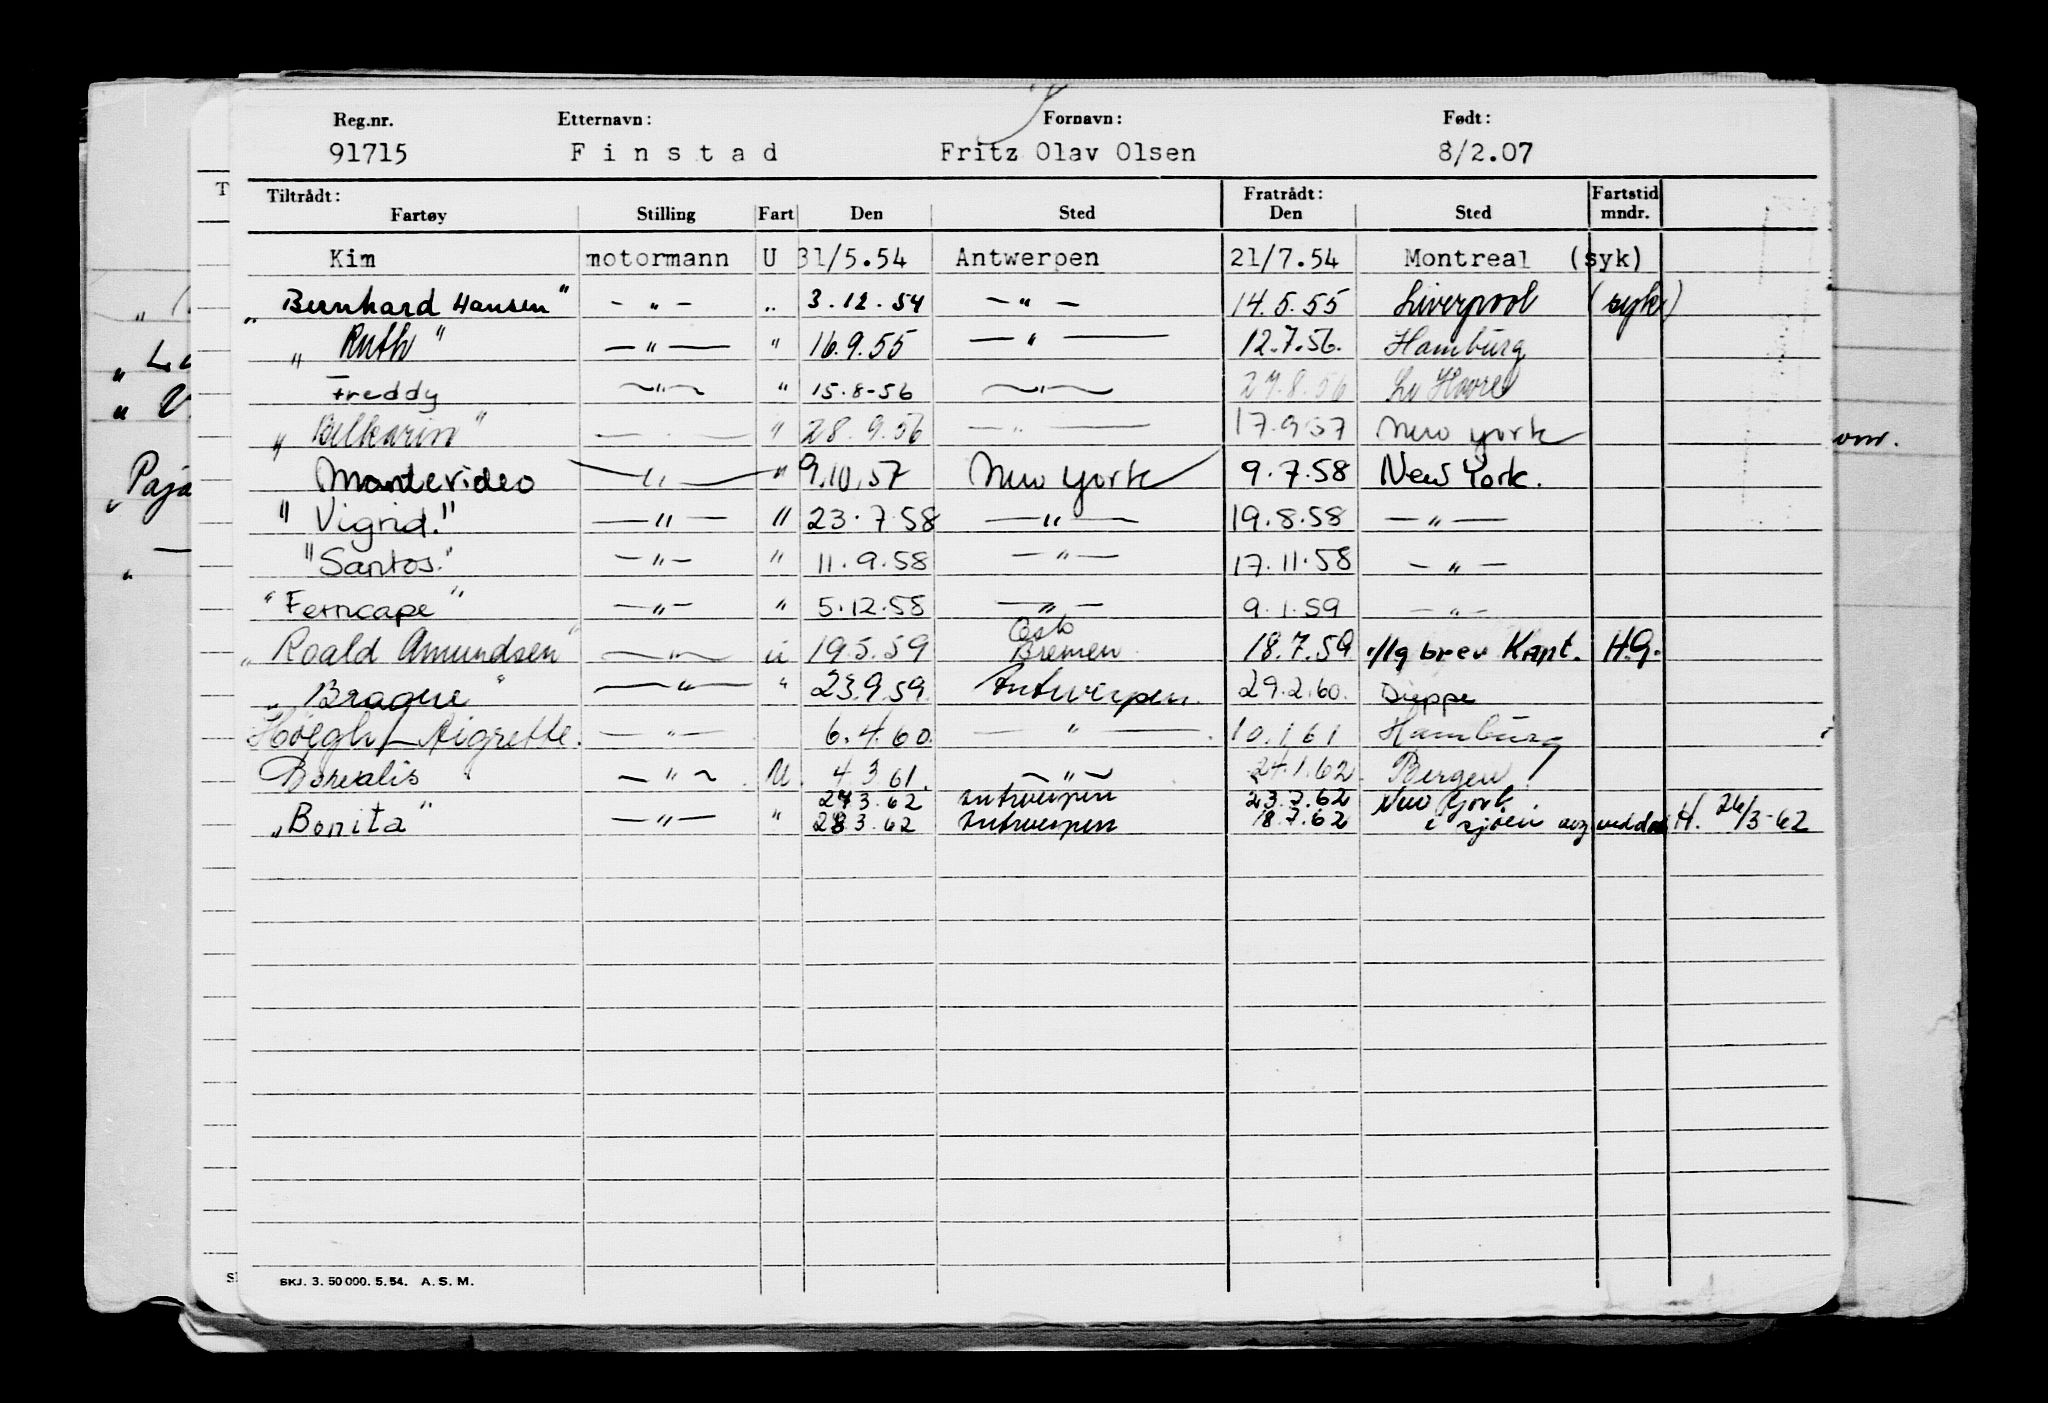 Reg.nr. Etternavn: Fornavn: Født:
91715 Finstad Fritz Olav Olsen 8/2.07
Tiltrådt: Fratrådt: Fartstid
Fartøy Stilling Fart Den Sted Den Sted mndr.
Kim motormann U 31/5.54 Antwerpen 21/7.54 Montreal (syk)
„Bernhard Hansen" — " — " 3.12.54 — " — 14.5.55 Liverpool (syk)
„Ruth" — " — " 16.9.55 — " — 12.7.56. Hamburg
Freddy — " — " 15.8-56 — " — 27.8.56 Le Havre
„Belkarin" — " — " 28.9.56 — " — 17.9.57 New York
Montevideo — " — " 9.10.57 New York 9.7.58 New York.
"Vigrid." — " — " 23.7.58 — " — 19.8.58 — " —
"Santos." — " — " 11.9.58 — " — 17.11.58 — " —
"Ferncape" — " — " 5.12.58 — " — 9.1.59 — " —
Oslo
„Roald Amundsen" — " — u 19.5.59 Bremen 18.7.59 iflg brev Kapt. H.G.
„Brague" — " — " 23.9.59. Antwerpen. 29.2.60. Dieppe
Höegh Aigrette. — " — 6.4.60. — " — 10.1.61 Hamburg
Borealis — " — U. 4.3.61. — " — 24.1.62. Bergen
3.62 Antwerpen 23.7.62 New York
„Bonita" — " — " 28.3.62 Antwerpen 18.7.62 i sjøen H. 26/3-62
SKJ. 3. 50 000. 5. 54. A. S. M.
T
„Paja
onr.